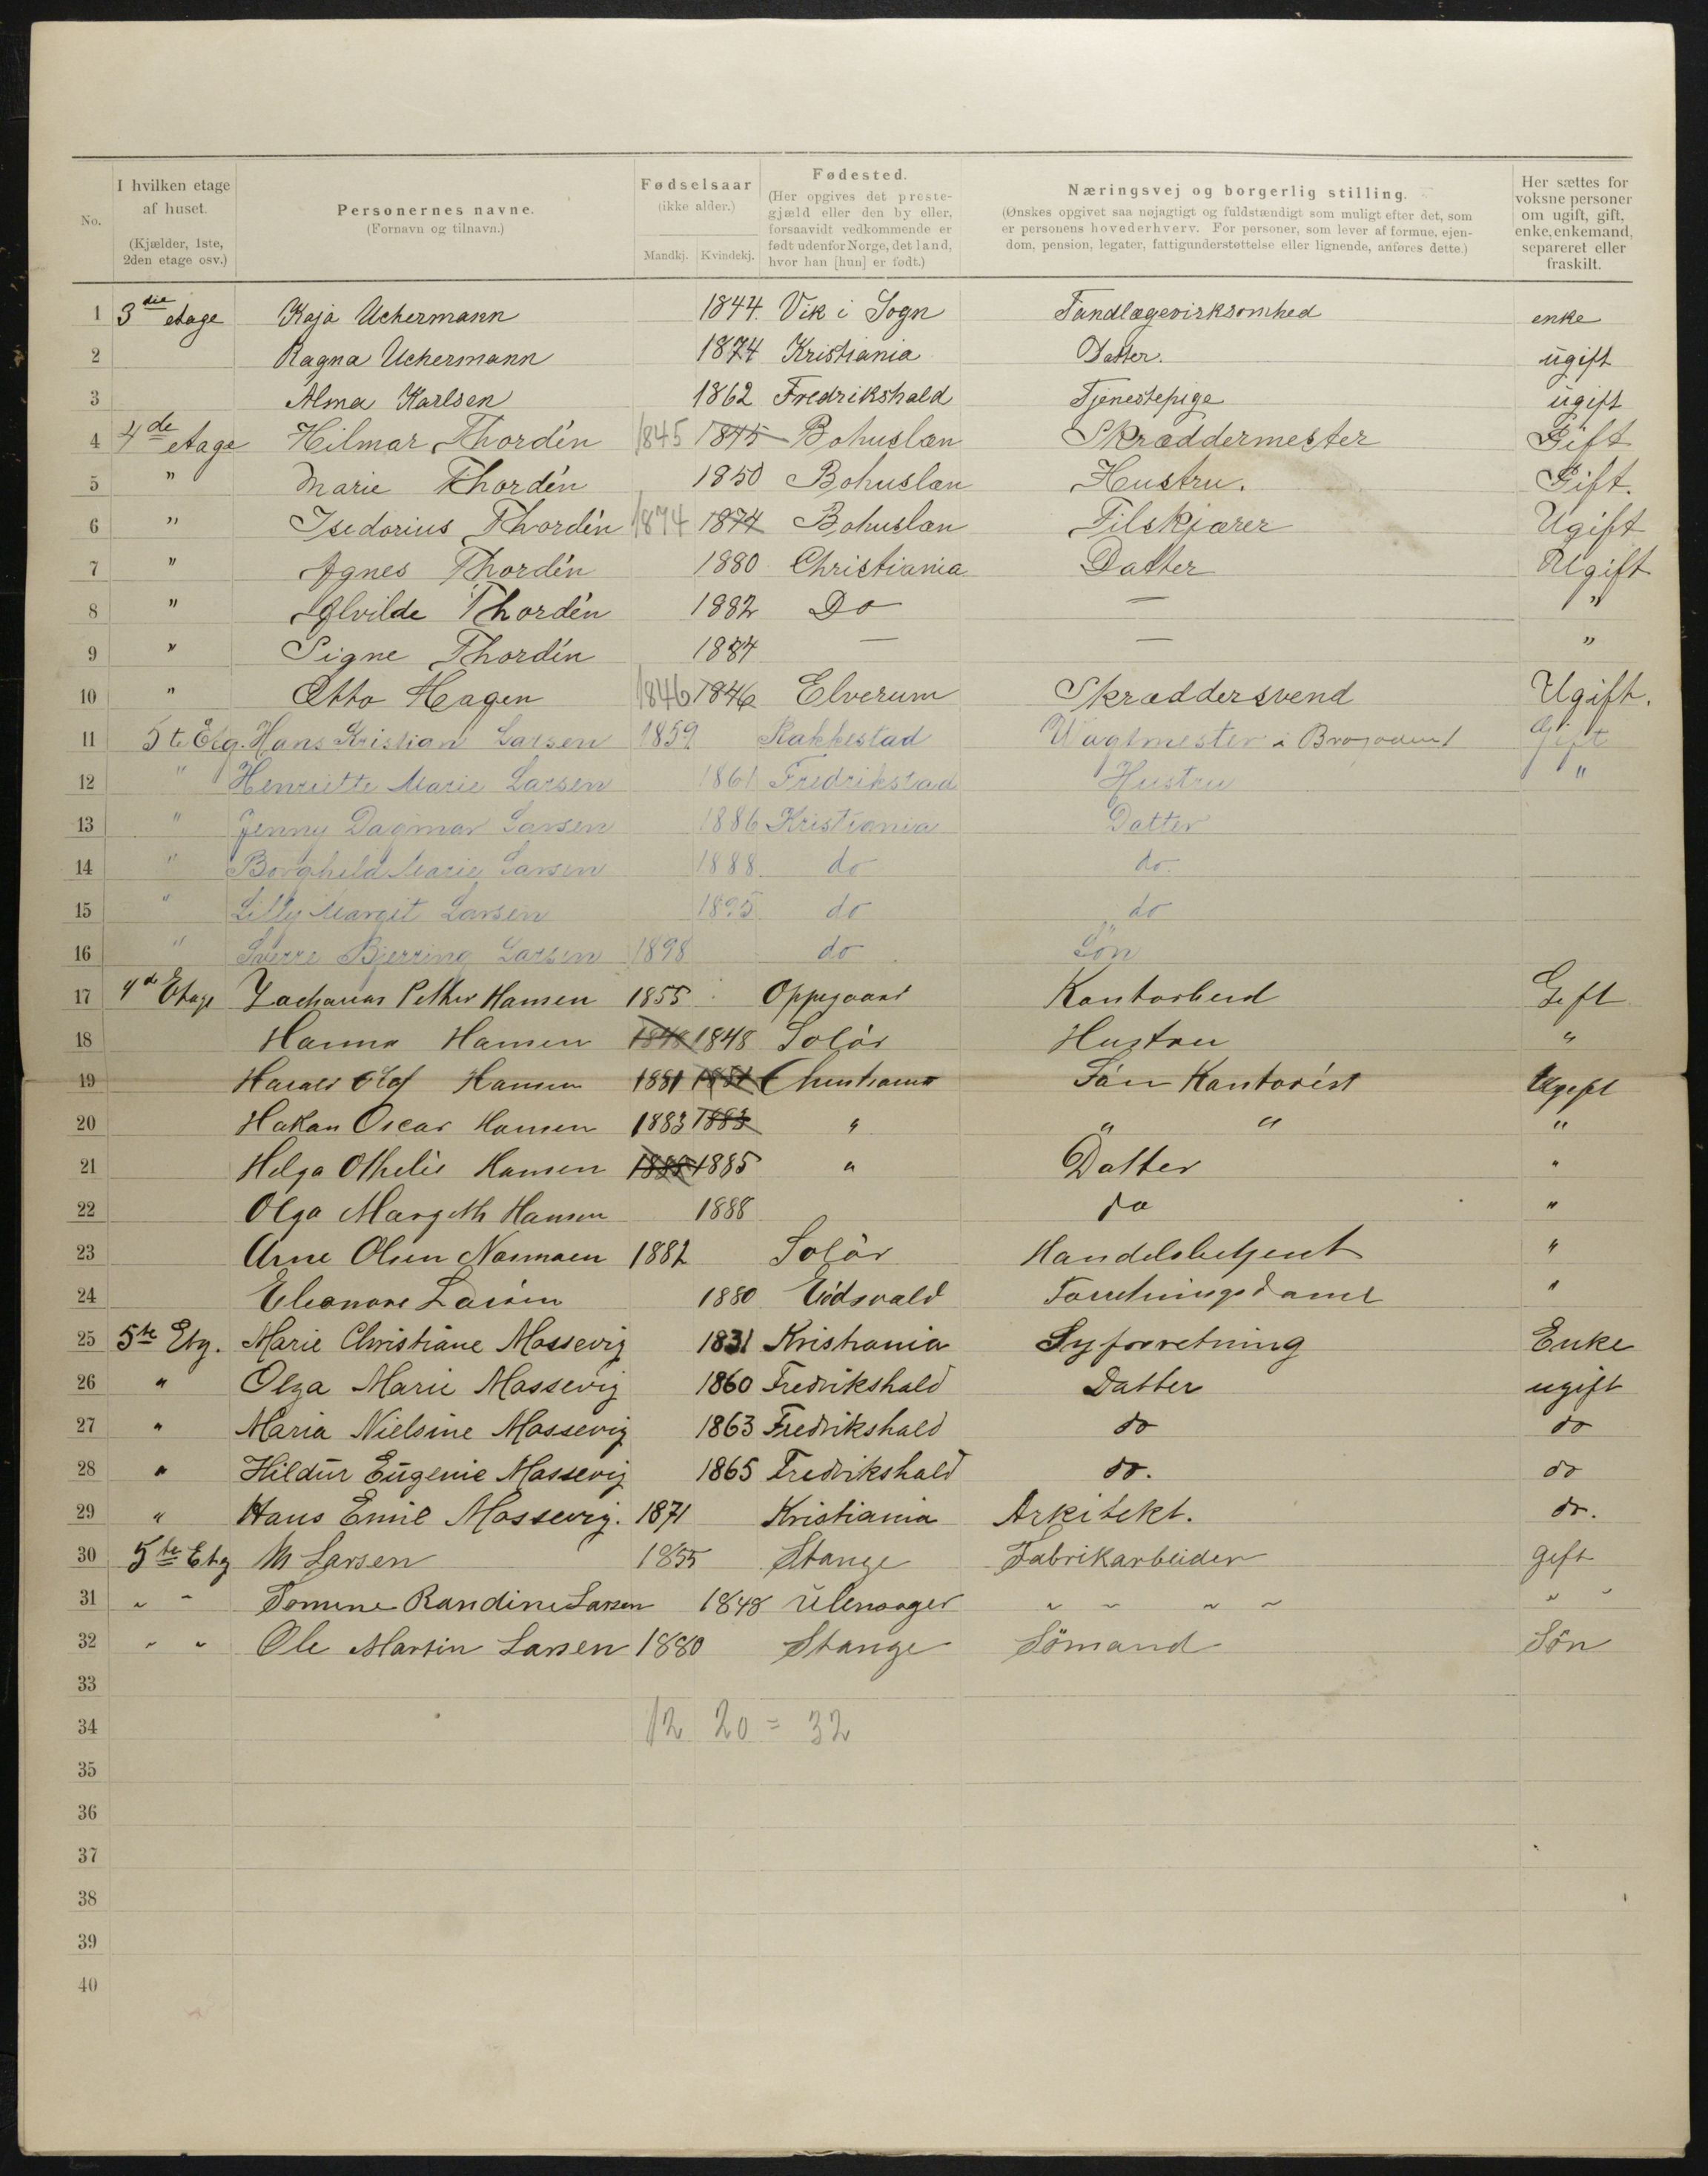 No. I hvilken etage af huset. (Kjælder, 1ste, 2den etage osv.) Personernes navne. (Fornavn og tilnavn.) Fødselsaar (ikke alder.) Mandkj. Kvindekj. Fødested. (Her opgives det prestegjæld eller den by eller, forsaavidt vedkommende er født udenfor Norge, det land, hvor han [hun] er født.) Næringsvej og borgerlig stilling. (Ønskes opgivet saa nøjagtigt og fuldstændigt som muligt efter det, som er personens hovederhverv. For personer, som lever af formue, ejendom, pension, legater, fattigunderstøttelse eller lignende, anføres dette.) Her sættes for voksne personer om ugift, gift, enke, enkemand, separeret eller fraskilt.
1 3die etage Kaja Uchermann 1844. Vik i Sogn Tandlægevirksomhed enke
2 Ragna Uchermann 1874 Kristiania Datter. ugift
3 Alma Karlsen 1862 Fredrikshald Tjenestepige ugift
4 4de etage Hilmar Thordén 1845 1845 Bohuslan Skræddermester Gift
5 " Marie Thordén 1850 Bohuslan Hustru. Gift.
6 " Isedorius Thordén 1874 1874 Bohuslan Tilskjærer Ugift
7 " Agnes Thordén 1880 Christiania Datter Ugift
8 " Alvilde Thordén 1882 Do — "
9 " Signe Thordén 1884 — — "
10 " Otto Hagen 1846 1846 Elverum Skræddersvend Ugift.
11 5te Etg. Hans Kristian Larsen 1859 Rakkestad Vagtmester i Gift
12 " Henriette Marie Larsen 1861 Fredrikstad Hustru "
13 " Jenny Dagmar Larsen 1886 Kristiania Datter
14 " Borghild Marie Larsen 1888. do do.
15 " Lilly Margit Larsen 1895. do do
16 " Sverre Bjerring Larsen 1898 do. Søn
17 4de Etage Zacharias Petter Hansen 1855 Oppegaard Kontorbud Gift
18 Hanna Hansen 1848 1848 Solör Hustru "
19 Harald Olaf Hansen 1881 1881 Christiania Sön Kontorist Ugift
20 Hakan Oscar Hansen 1883 1883 " " " "
21 Helga Othelie Hansen 1885 1885 " Datter "
22 Olga Margith Hansen 1888 do "
23 Arne Olsen 1882 Solör Handelsbetjent "
24 Eleonore Larsen 1880 Eidsvald Forretningsdame "
25 5te Etg. Marie Christiane Massevig 1831 Kristiania Syforretning Enke
26 " Olga Marie Massevig 1860 Fredrikshald Datter ugift
27 " Maria Nielsine Massevig 1863 Fredrikshald do do
28 " Hildur Eugenie Massevig 1865 Fredrikshald do. do
29 " Hans Emil Massevig. 1871 Kristiania Arkitekt. do.
30 5te Etg M Larsen 1855 Stange Fabrikarbeider gift
31 " " Tomine Randine Larsen 1848 Ulensager " " " " " "
32 " " Ole Martin Larsen 1880 Stange Sömand Sön
33
34 12 20 = 32
35
36
37
38
39
40